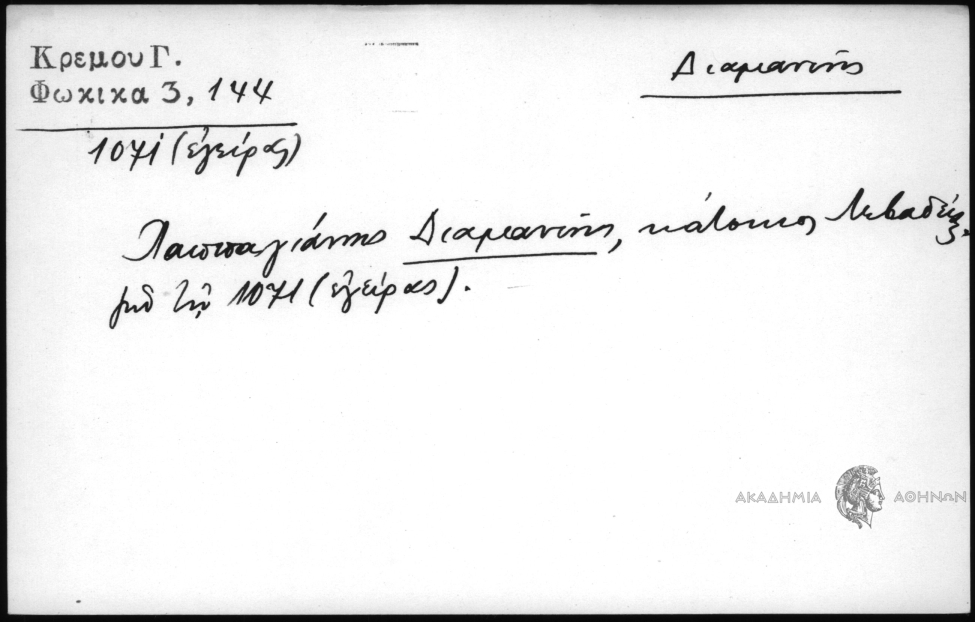 Κρεμου Γ.
Φωκικα 3, 144
Διαμαντής
1071 (ἐγείρας)
Παππαγιάννης Διαμαντής, κάτοικος Λεβαδείας
1071 (ἐγείρας).
ΑΚΑΔΗΜΙΑ ΑΘΗΝΩΝ